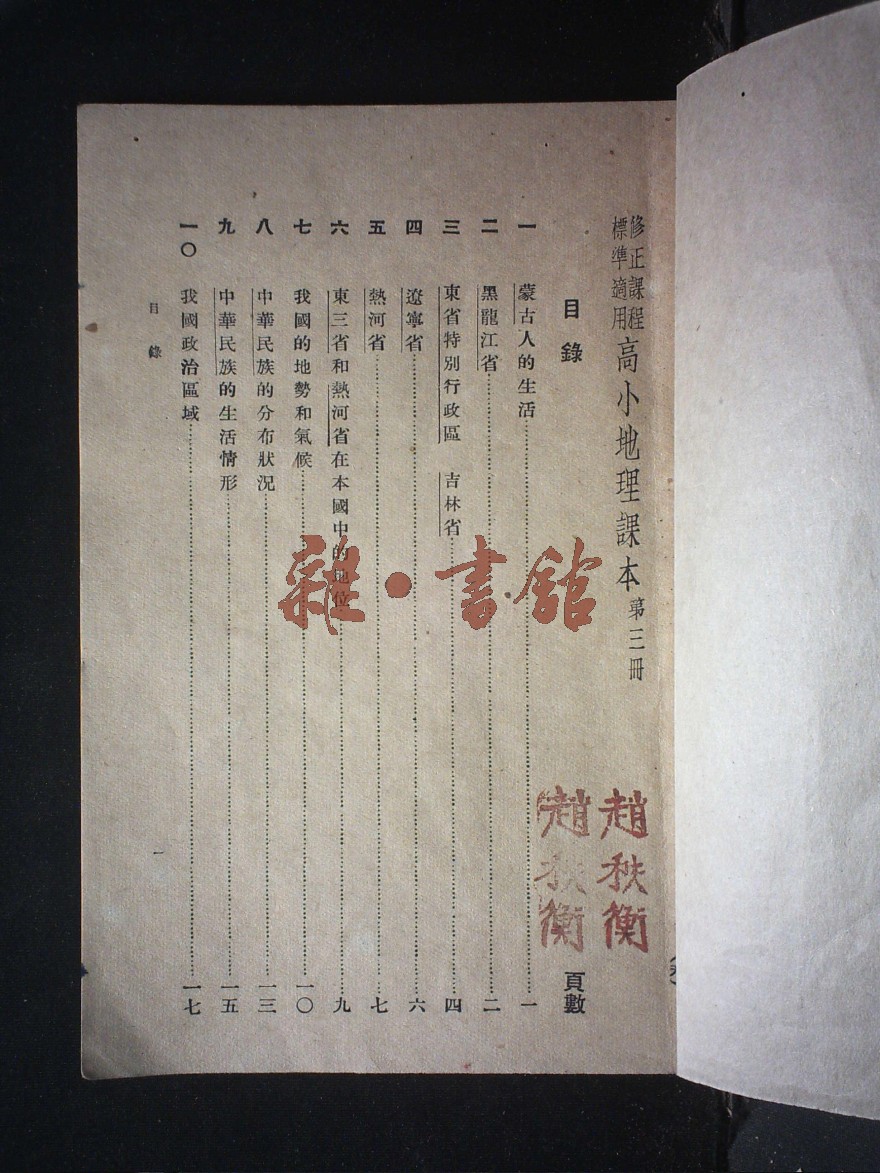 修正課程
標準適用
高小地理課本 第三冊
趙秩衡
趙秩衡
目錄
頁數
一 蒙古人的生活 一
二 黑龍江省 二
三 東省特別行政區 吉林省 四
四 遼寧省 六
五 熱河省 七
六 東三省和熱河省在本國中的地位 九
七 我國的地勢和氣候 一〇
八 中華民族的分布狀況 一三
九 中華民族的生活情形 一五
一〇 我國政治區域 一七
目錄
一
雜·書館